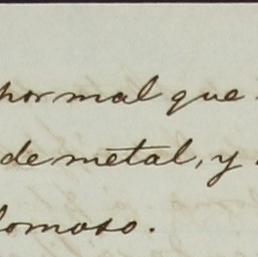 por mal que
de metal, y
lomoso.